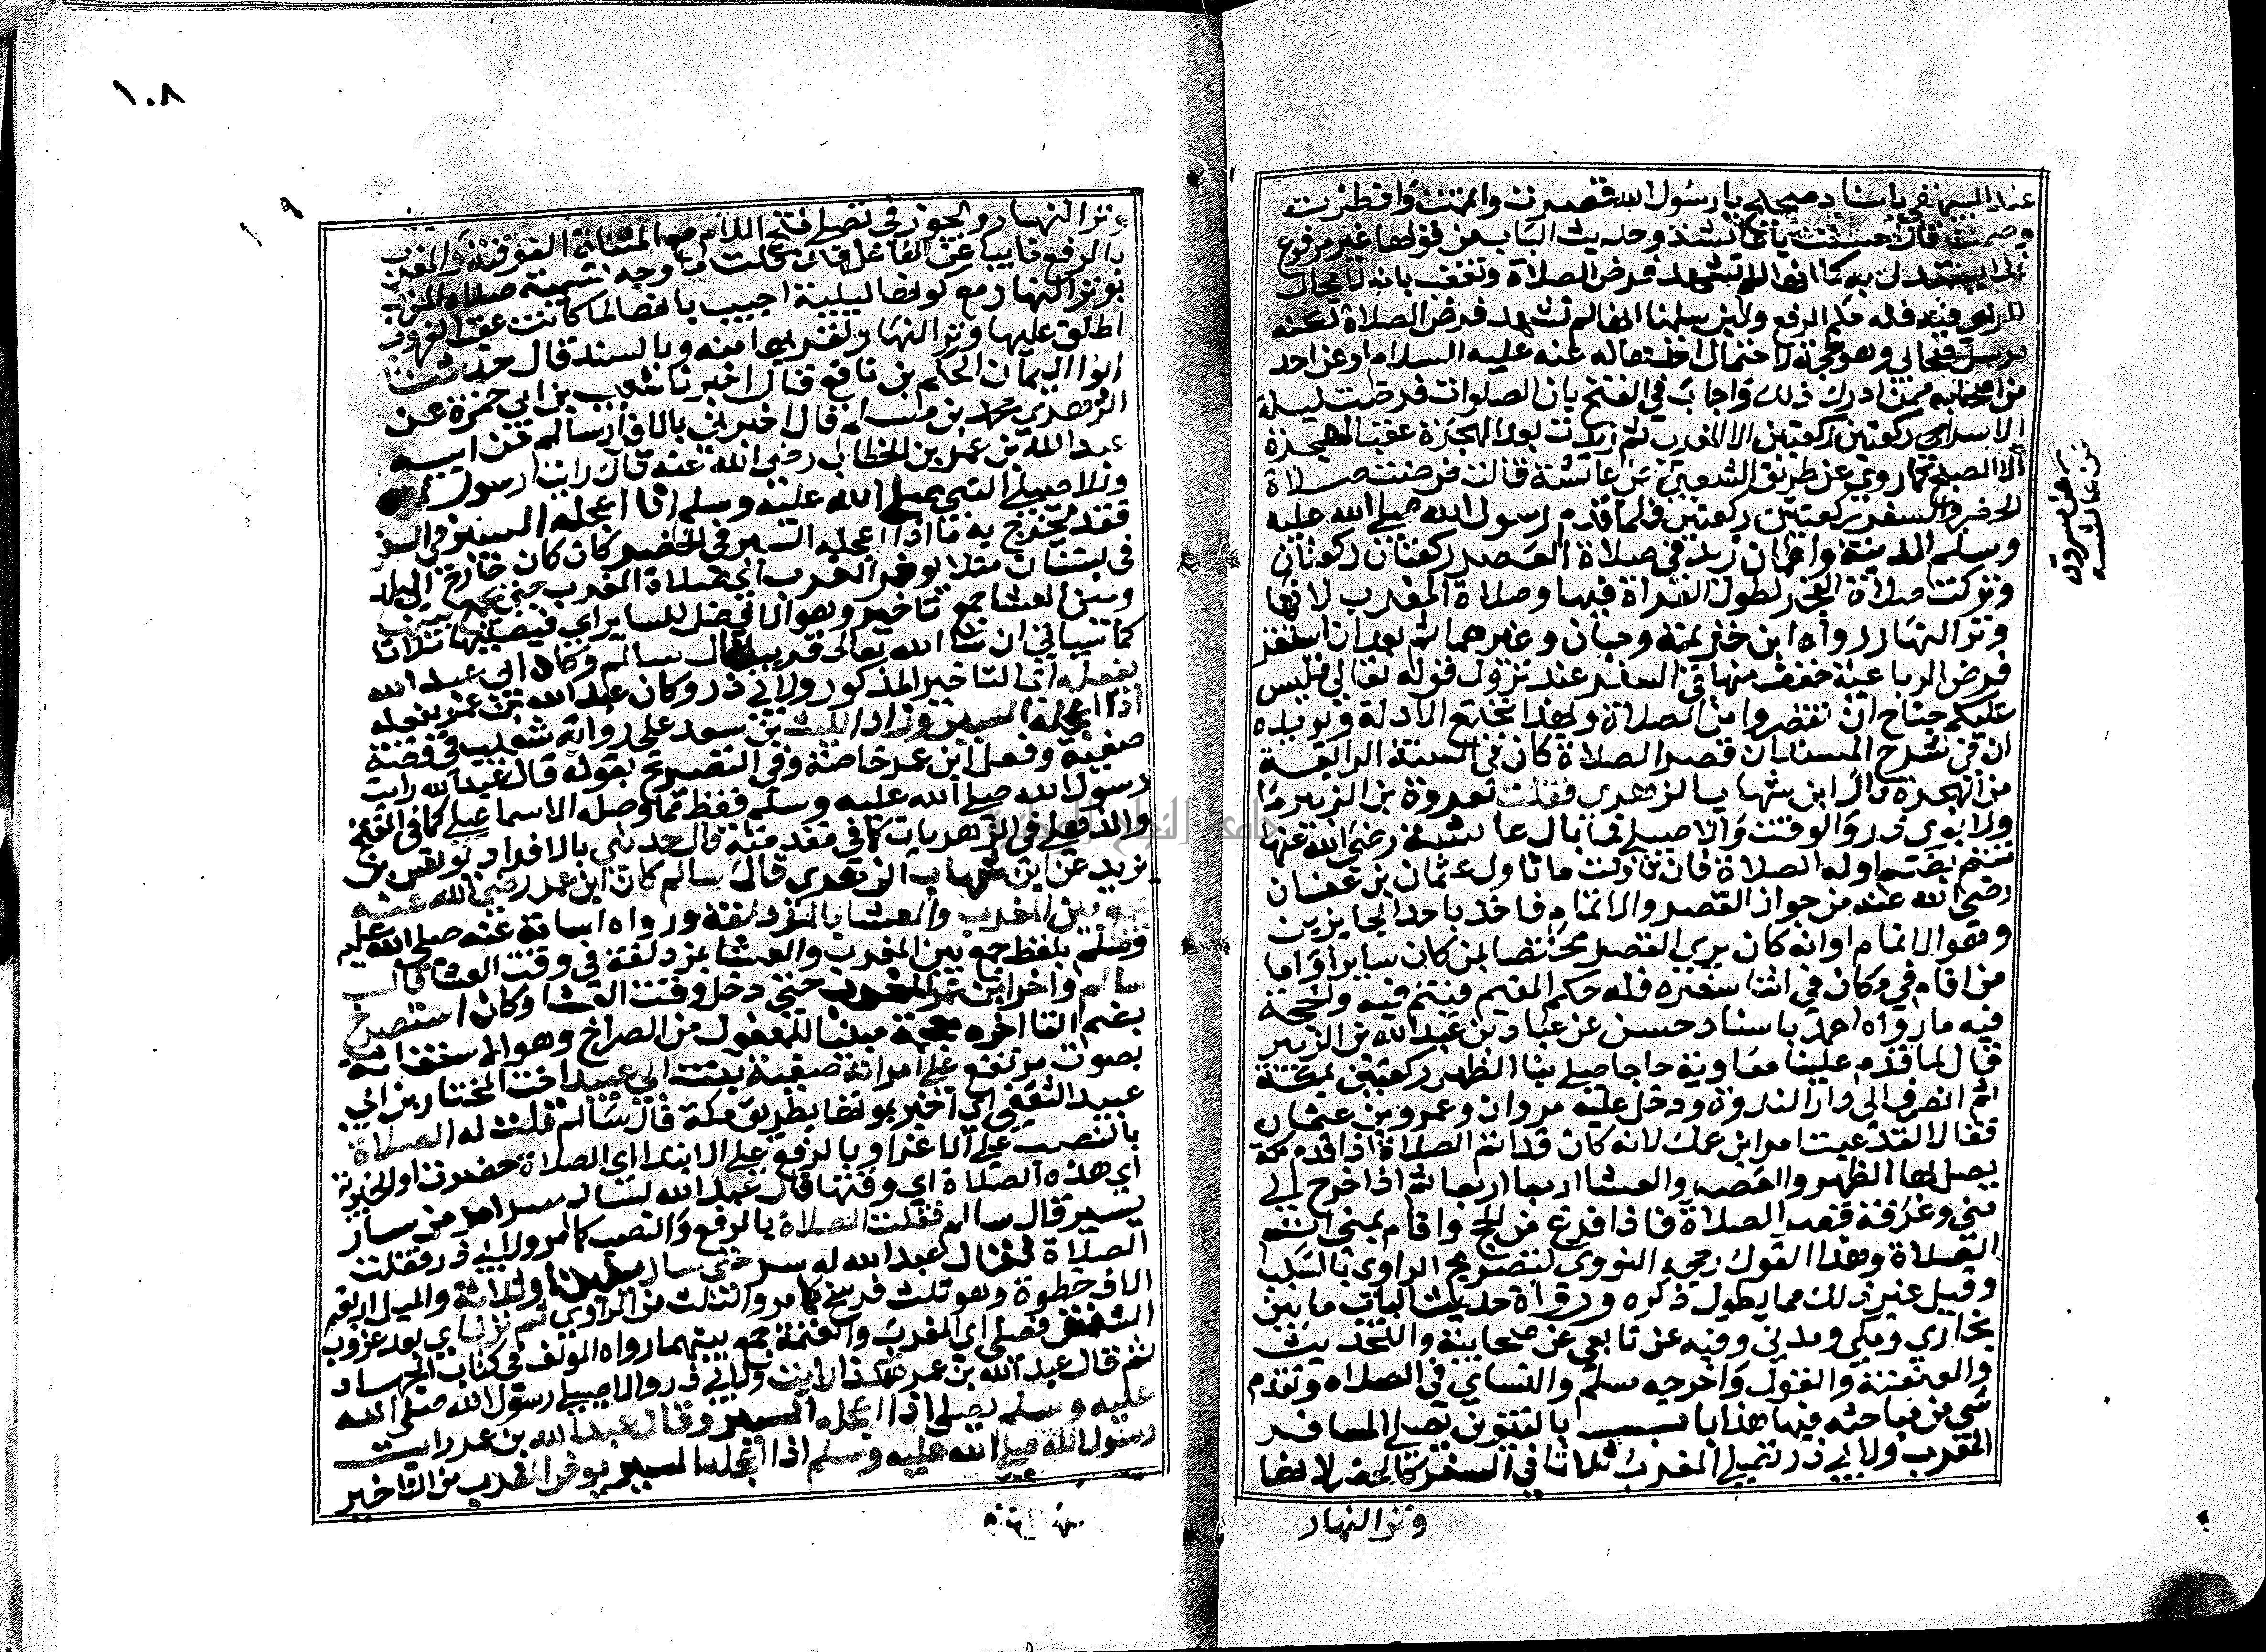 عند البيهقي باسناد صحيح يا رسول الله قصرت واتممت وافطرت
وصمت قال احسنت يا عائشة وحديث الباب من قولها غير مرفوع
فلا يستدل به كما انها لم تشهد فرض الصلاة وتعقب بانه لا مجال
للراي فيه فله حكم الرفع ولين سلمنا انها لم تشهد فرض الصلاة لكنه
مرسل صحابي وهو حجة لاحتمال اخذها له عنه عليه السلام او عن احد
من اصحابه ممن ادرك ذلك واجاب في الفتح بان الصلوات فرضت ليلة
الاسراء ركعتين ركعتين الا المغرب ثم زيدت بعد الهجرة عقب الهجرة
الا الصبح كما روي عن طريق الشعبي عن عائشة قالت فرضت صلاة
عن مسروق
عن عائشة
الحضر والسفر ركعتين ركعتين فلما قدم رسول الله صلى الله عليه
وسلم المدينة واطمان زيد في صلاة الحضر ركعتان ركعتان
وتركت صلاة الفجر لطول القراة فيها وصلاة المغرب لانها
وتر النهار رواه ابن خزيمة وحبان وغيرهما ثم بعد ان استقر
فرض الرباعية خفف منها في السفر عند نزول قوله تعالى فليس
عليكم جناح ان تقصروا من الصلاة وبهذا تجتمع الادلة ويويده
ان في شرح المسند ان قصر الصلاة كان في السنة الرابعة
من الهجرة قال ابن شهاب الزهري فقلت لعروة بن الزبير ما
ولابوي ذر والوقت والاصيلي فما بال عائشة رضي الله عنها
تتم بضم اوله الصلاة قال تاولت ما تاول عثمان بن عفان
رضي الله عنه من جواز القصر والاتمام فاخذ باحد الجايزين
وهو الاتمام او انه كان يري القصر مختصا بمن كان سايرا واما
من اقام في مكان في اثنا سفره فله حكم المقيم فيتم فيه والحجة
فيه ما رواه احمد باسناد حسن عن عباد بن عبد الله بن الزبير
قال لما قدم علينا معاوية حاجا صلى بنا الظهر ركعتين بمكة
ثم انصرف الى دار الندوة ودخل عليه مروان وعمرو بن عثمان
فقالا لقد عبت امر ابن عمك لانه كان قد اتم الصلاة اذا قدم مكة
يصلي بها الظهر والعصر والعشا اربعا اربعا ثم اذا خرج الى
منى وعرفة قصر الصلاة فاذا فرغ من الحج واقام بمنى اتم
الصلاة وهذا القول رجحه النووي لتصريح الراوي بالسبب
وقيل غير ذلك مما يطول ذكره ورواة حديث الباب ما بين
بخاري ومكي ومدني وفيه عن تابعي عن صحابية والتحديث
والعنعنة والقول واخرجه مسلم والنساي في الصلاه وتقدم
شي من مباحثه فيها هذا باب بالتنوين يصلى المسافر
المغرب ولابي ذر تصلى المغرب ثلاثا في السفر كالحضر لانها
وتر النهار
١٠٨
وتر النهار ويجوز في تصلى فتح اللام مع المثناة الفوقية والمغرب
بالرفع نايبا عن الفاعل فان قلت ما وجه تسمية صلاة المغرب
بوتر النهار مع كونها ليلية اجيب بانها لما كانت عقب النهار
اطلق عليها وتر النهار لقربها منه وبالسند قال حدثنا
ابو اليمان الحكم بن نافع قال اخبرنا شعيب بن ابي حمزة عن
الزهري محمد بن مسلم قال اخبرني بالافراد سالم عن ابيه
عبد الله بن عمر بن الخطاب رضي الله عنه قال رايت رسول الله
وللاصيلي النبي صلى الله عليه وسلم اذا اعجله السير في السفر
فقد يخرج به ما اذا اعجله السير في الحضر كان كان خارج البلد
في بستان مثلا يوخر المغرب اي صلاة المغرب حتى يجمع بينها
وبين العشا جمع تاخير وهو الافضل للساير اي فيصليها ثلاثا
كما سياتي ان شا الله تعالى قريبا قال سالم وكان ابي عبد الله
يفعله اي التاخير المذكور ولابي ذر وكان عبد الله بن عمر يفعله
اذا اعجله السير وزاد الليث بن سعد على رواية شعيب في قصة
صفية وفعل ابن عمر خاصة وفي التصريح بقوله قال عبد الله رايت
رسول الله صلى الله عليه وسلم فقط مما وصله الاسماعيلي كما في الفتح
والذهلي في الزهريات كما في مقدمته قال حدثني بالافراد يونس بن
يزيد عن ابن شهاب الزهري قال سالم كان ابن عمر رضي الله عنه
يجمع بين المغرب والعشا بالمزدلفة ورواه اسامة عنه صلى الله عليه
وسلم بلفظ جمع بين المغرب والعشا بمزدلفة في وقت العشا قال
سالم واخر ابن عمر المغرب حتى دخل وقت العشا وكان استصرخ
بضم التا اخره معجمة مبنيا للمفعول من الصراخ وهو الاستغاثة
بصوت مرتفع على امراته صفية بنت ابي عبيد اخت المختار بن ابي
عبيد الثقفي اي اخبر بموتها بطريق مكة قال سالم فقلت له الصلاة
بالنصب على الاغراء وبالرفع على الابتدا اي الصلاة حضرت او الخبرية
اي هذه الصلاة اي وقتها قال عبد الله لسالم سر امر من سار
يسير قال سالم فقلت الصلاة بالرفع والنصب كما مر ولابي ذر فقلت
الصلاة فقال عبد الله له سر حتى سار ميلين او ثلاثة والميل اربعة
الاف خطوة وهو ثلث فرسخ كما مر والشك من الراوي ثم نزل اي بعد غروب
الشفق فصلى اي المغرب والعتمة جمع بينهما رواه المولف في كتاب الجهاد
ثم قال عبد الله بن عمر هكذا رايت ولابي ذر والاصيلي رسول الله صلى الله
عليه وسلم يصلي اذا اعجله السير وقال عبد الله بن عمر رايت
رسول الله صلى الله عليه وسلم اذا اعجله السير يوخر المغرب من التاخير